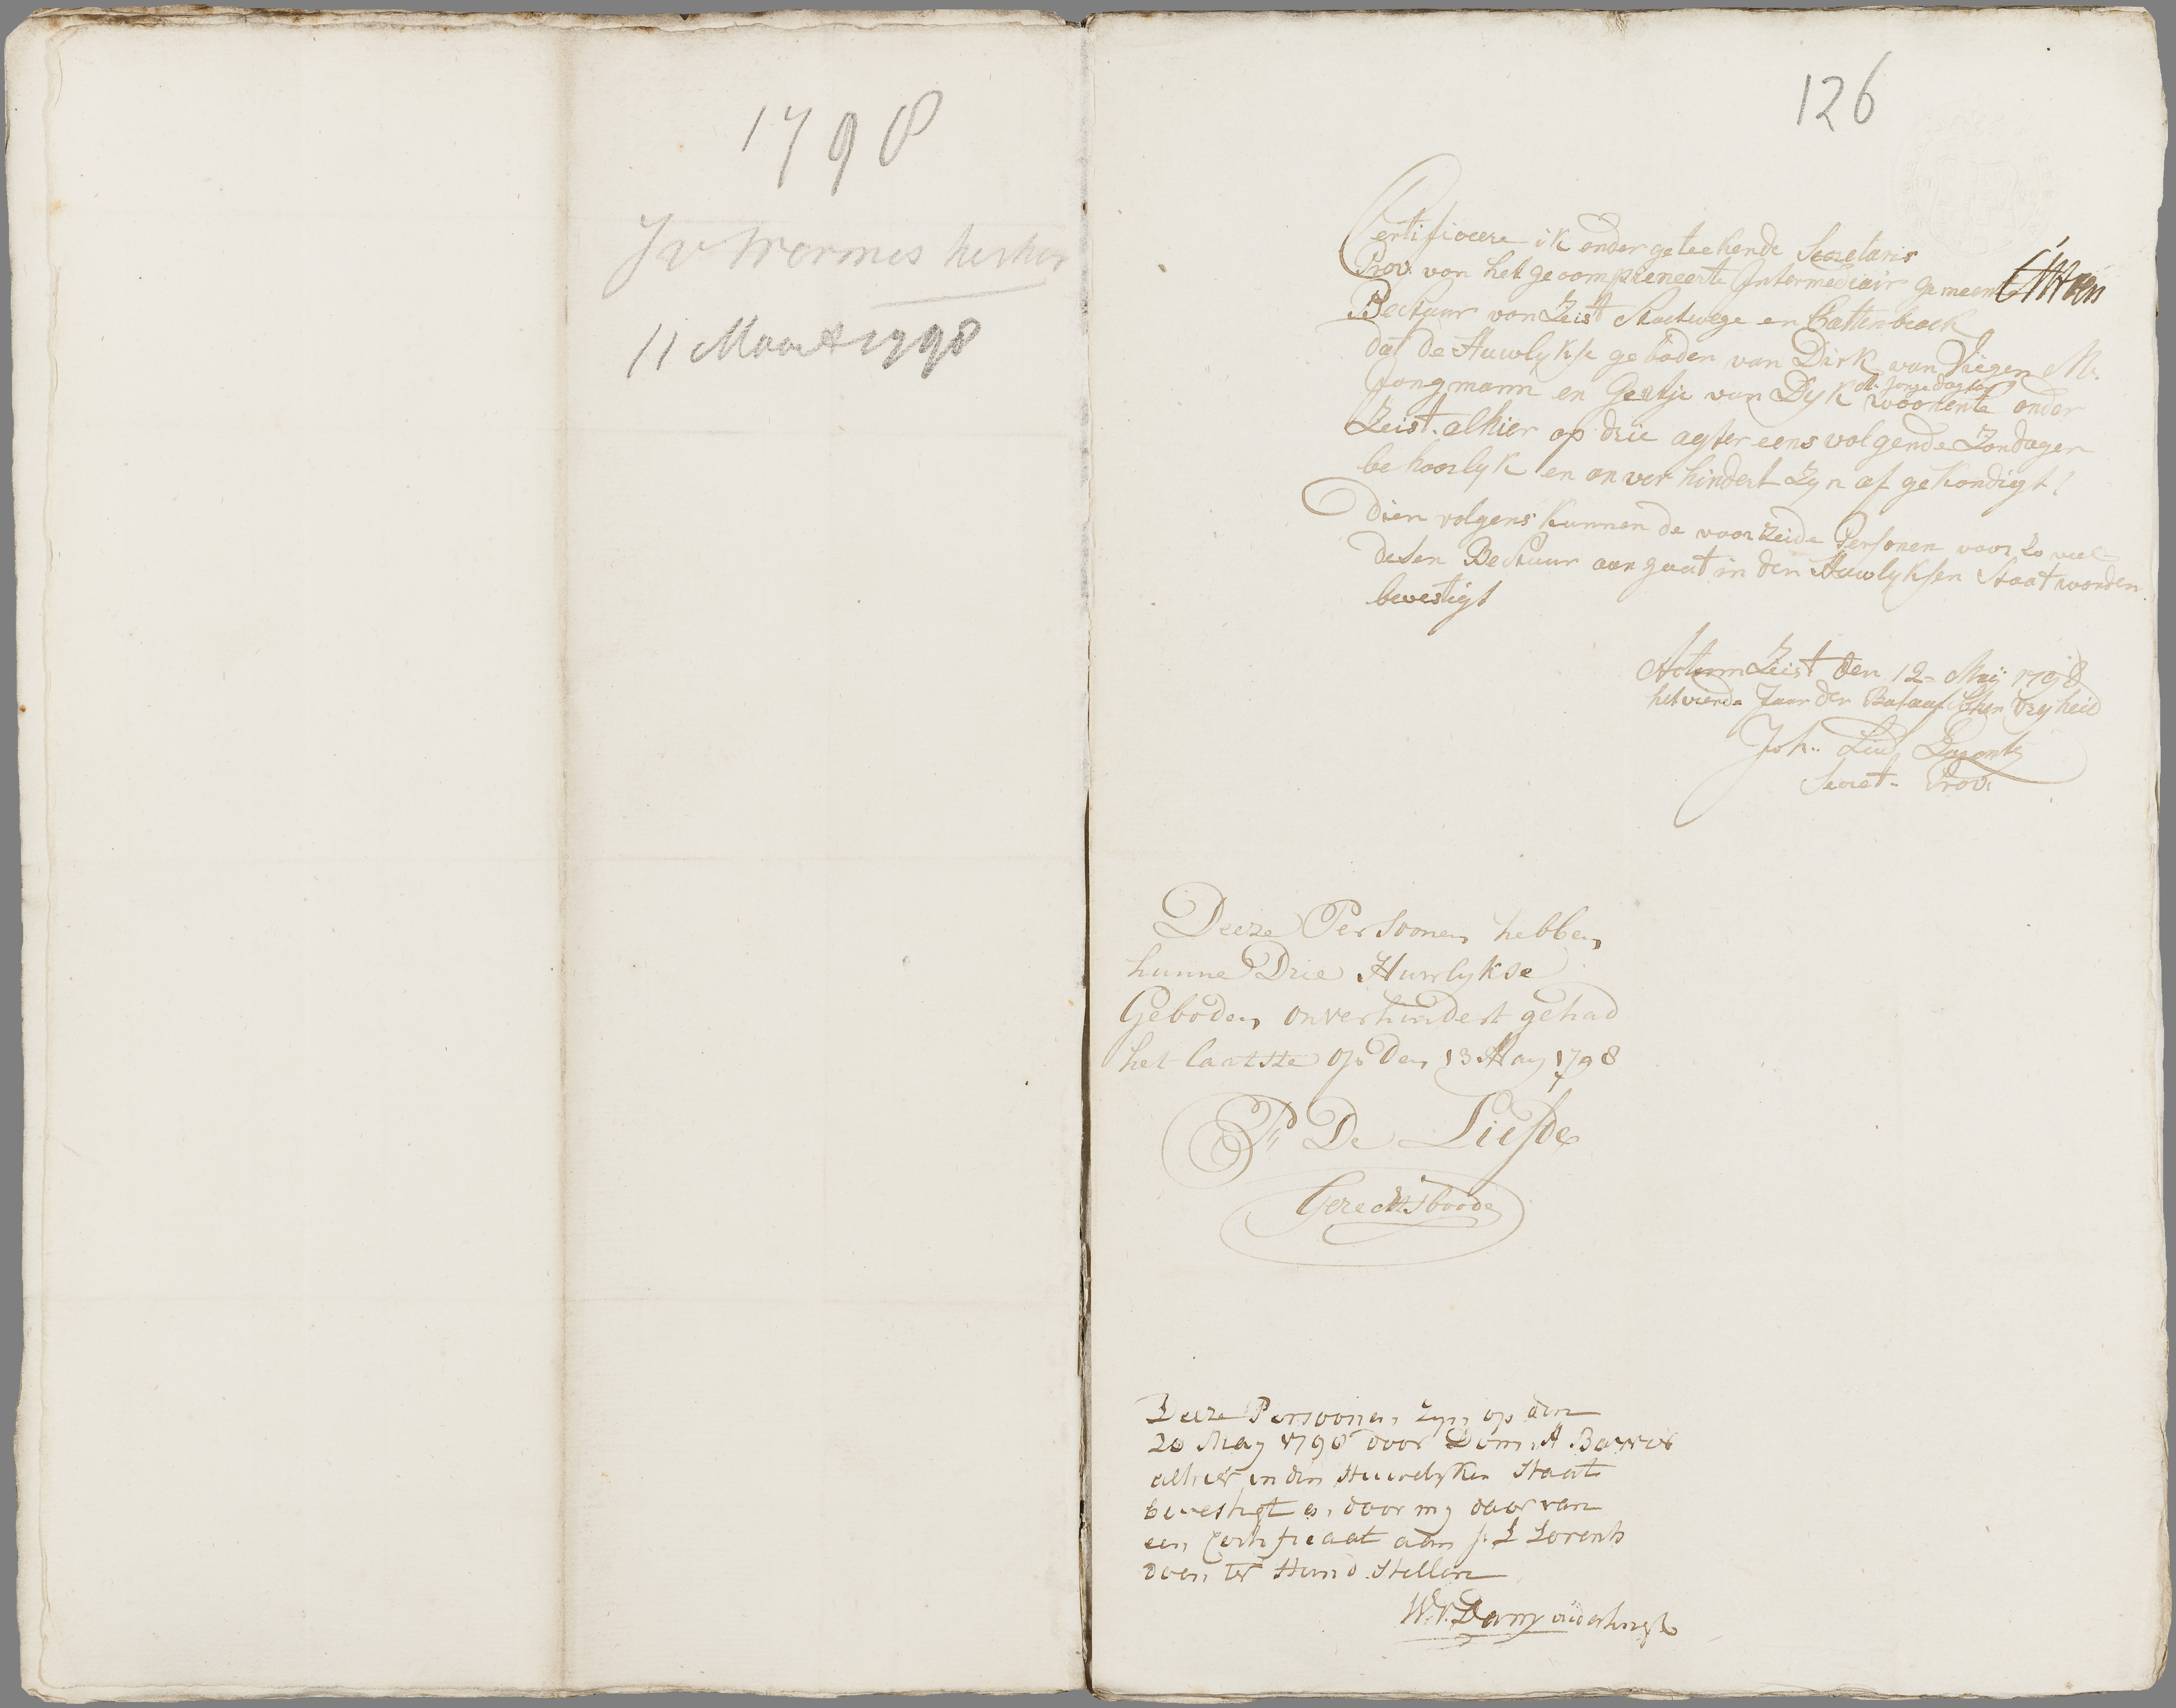 1798
J v
11 Maart 1798
126
Certificeere ik onder geteekende Secretaris
Prov: van het gecompineerte Intermediair gemeente
Bestuur van Zeist Stoetwege en Cattenbroek
dat de Huwlykse geboden van Dirk van Viegen M.
jongmann en Geertje van Dyk woonente onder
M. Jonge dogter
Zeist. alhier op drie agter eens volgende Zondagen
behoorlyk en onverhindert Zyn af gekondigt!
Dien volgens kunnen de voorzeide Personen voor Zo veel
desen Bestuur aangaat in den Huwlyksen Staat worden
bevestigt
Actum Zeist den 12 = Mey 1798
het vierde Jaar der Bataafschen Vryheid
Joh: Lud Lorentz
Secret. Prov:
Deeze Persoonen hebben
hunne Drie Huwlykse
Geboden onverhindert gehad
het laatste op Den 13 May 1798
P De Liefde
Gerechtsboode
Deeze Persoonen zyn op den
20 May 1798 door Dom. A
alhier in den Huwelyken Staat
bevestigt en door my daar van
een Certificaat aan J. L Lorents
doen ter Hand Stellen
W. V. Dam